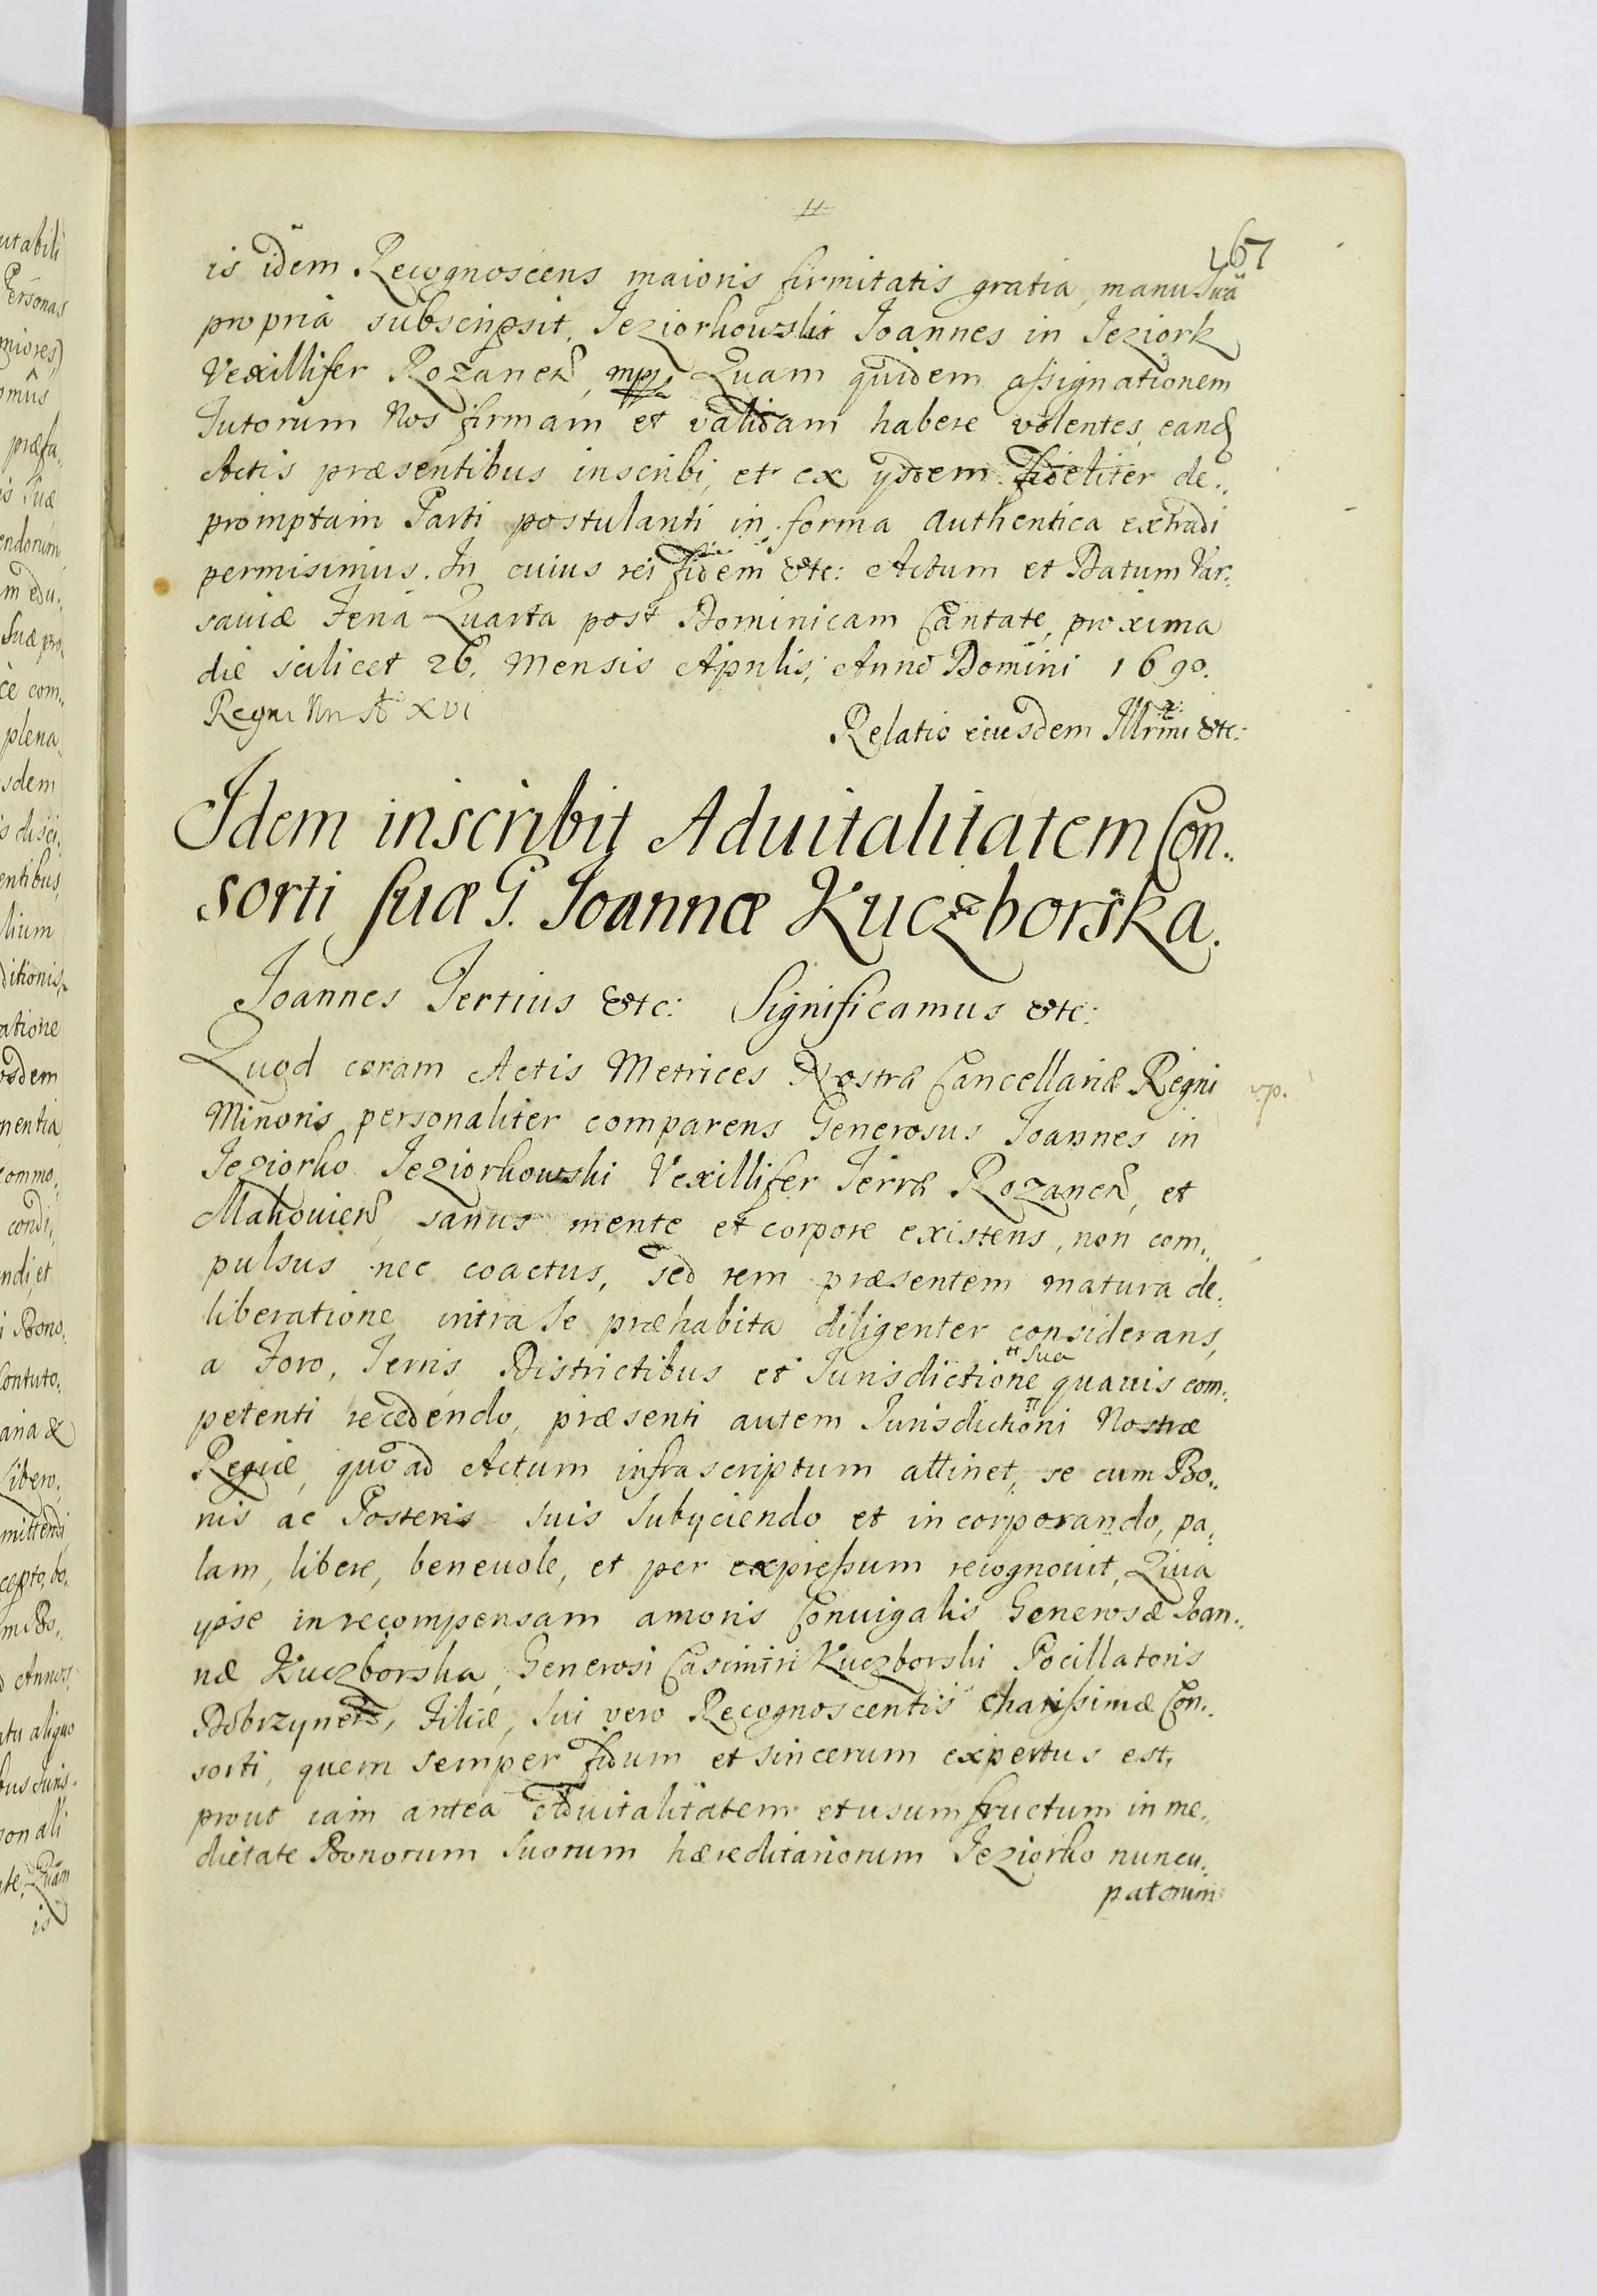 167
is idem Recognoscens maioris firmitatis gratia, manu Sua
propria subscripsit. Jeziorkowski Joannes in Jeziork
Vexillifer Rozanen mpp. Quam quidem assignationem
Tutorum Nos firmam et validam habere volentes, eand
Actis præsentibus inscribi, et ex ysdem fideliter de..
promptam Parti postulanti in forma authentica extradi
permisimus. In cuius rei fidem etc: Actum et Datum Var:
saviæ Feria Quarta post Dominicam Cantate, proxima
die scilicet 26. Mensis Aprilis, Anno Domini 1690.
Regni Nri A XVI
Relatio eiusdem Illrmi etc:
Idem inscribit Aduitalitatem Con..
sorti suæ G. Joannæ Kuczborska.
Joannes Tertius etc: Significamus etc:
Quod coram Actis Metrices Nostræ Cancellariæ Regni
Minoris personaliter comparens Generosus Joannes in
Jeziorko Jeziorkowski Vexillifer Terræ Rozanen, et
Makovien, sanus mente et corpore existens, non com..
pulsus nec coactus, sed rem præsentem matura de.
liberatione intra se præhabita diligenter considerans,
a Foro, Terris Districtibus et Jurisdictione quavis com..
Sua
petenti recedendo, præsenti autem Jurisdictioni Nostræ
Regiæ, quo ad Actum infrascriptum attinet, se cum Bo..
nis ac Posteris suis subyciendo et incorporando, pa.
lam, libere, benevole, et per expressum recognovit, Quia
ypse in recompensam amoris Conuigalis Generosæ Joan..
næ Kuczborska, Generosi Casimiri Kuczborski Pocillatoris
Dobrzynen, Filiæ, sui vero Recognoscentis charissimæ Con..
sorti, quem semper fidum et sincerum expertus est,
prout iam antea Aduitalitatem et usumfructum in me..
dietate Bonorum suorum hæreditariorum Jeziorko nuncu..
patorum